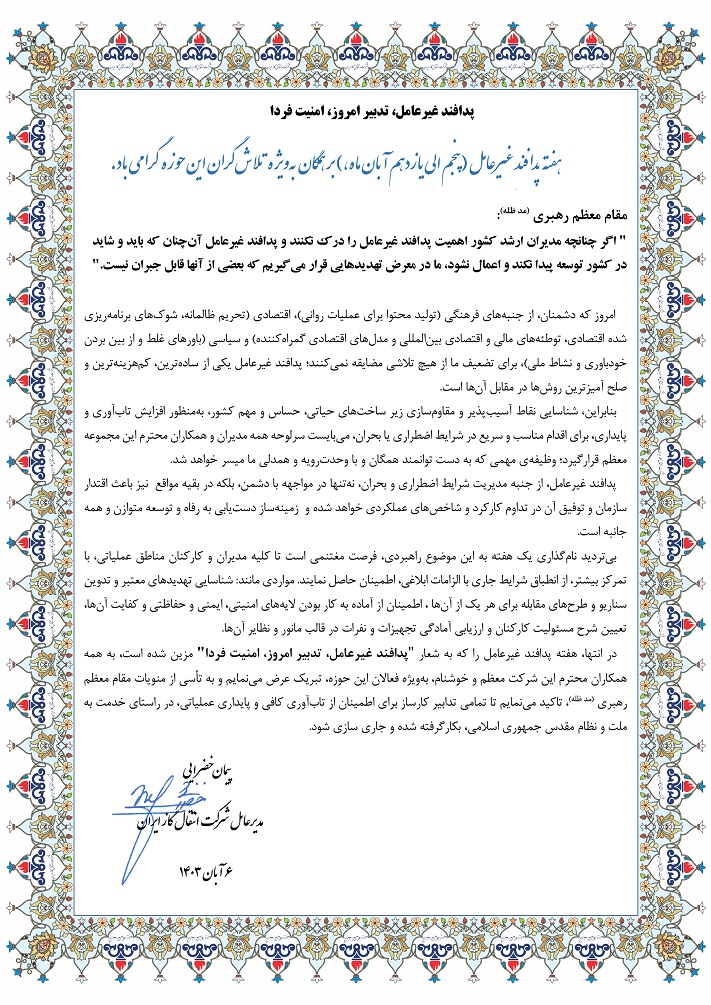 پدافند غیرعامل، تدبیر امروز، امنیت فردا
هفته پدافند غیرعامل (پنجم الی یازدهم آبان ماه،) بر همگان به ویژه تلاش گران این حوزه گرامی باد.
مقام معظم رهبری (مد ظله):
" اگر چنانچه مدیران ارشد کشور اهمیت پدافند غیرعامل را درک نکنند و پدافند غیرعامل آن‌چنان که باید و شاید
در کشور توسعه پیدا نکند و اعمال نشود، ما در معرض تهدیدهایی قرار می‌گیریم که بعضی از آنها قابل جبران نیست."
امروز که دشمنان، از جنبه‌های فرهنگی (تولید محتوا برای عملیات روانی)، اقتصادی (تحریم ظالمانه، شوک‌های برنامه‌ریزی
شده اقتصادی، توطئه‌های مالی و اقتصادی بین‌المللی و مدل‌های اقتصادی گمراه‌کننده) و سیاسی (باورهای غلط و از بین بردن
خودباوری و نشاط ملی)، برای تضعیف ما از هیچ تلاشی مضایقه نمی‌کنند؛ پدافند غیرعامل یکی از ساده‌ترین، کم‌هزینه‌ترین و
صلح آمیزترین روش‌ها در مقابل آن‌ها است.
بنابراین، شناسایی نقاط آسیب‌پذیر و مقاوم‌سازی زیر ساخت‌های حیاتی، حساس و مهم کشور، به‌منظور افزایش تاب‌آوری و
پایداری، برای اقدام مناسب و سریع در شرایط اضطراری یا بحران، می‌بایست سرلوحه همه مدیران و همکاران محترم این مجموعه
معظم قرارگیرد؛ وظیفه‌ی مهمی که به دست توانمند همگان و با وحدت‌رویه و همدلی ما میسر خواهد شد.
پدافند غیرعامل، از جنبه مدیریت شرایط اضطراری و بحران، نه‌تنها در مواجهه با دشمن، بلکه در بقیه مواقع نیز باعث اقتدار
سازمان و توفیق آن در تداوم کارکرد و شاخص‌های عملکردی خواهد شده و زمینه‌ساز دست‌یابی به رفاه و توسعه متوازن و همه
جانبه است.
بی‌تردید نام‌گذاری یک هفته به این موضوع راهبردی، فرصت مغتنمی است تا کلیه مدیران و کارکنان مناطق عملیاتی، با
تمرکز بیشتر، از انطباق شرایط جاری با الزامات ابلاغی، اطمینان حاصل نمایند. مواردی مانند: شناسایی تهدیدهای معتبر و تدوین
سناریو و طرح‌های مقابله برای هر یک از آن‌ها ، اطمینان از آماده به کار بودن لایه‌های امنیتی، ایمنی و حفاظتی و کفایت آن‌ها،
تعیین شرح مسئولیت کارکنان و ارزیابی آمادگی تجهیزات و نفرات در قالب مانور و نظایر آن‌ها.
در انتها، هفته پدافند غیرعامل را که به شعار "پدافند غیرعامل، تدبیر امروز، امنیت فردا" مزین شده است، به همه
همکاران محترم این شرکت معظم و خوشنام، به‌ویژه فعالان این حوزه، تبریک عرض می‌نمایم و به تأسی از منویات مقام معظم
رهبری (مد ظله)، تاکید می‌نمایم تا تمامی تدابیر کارساز برای اطمینان از تاب‌آوری کافی و پایداری عملیاتی، در راستای خدمت به
ملت و نظام مقدس جمهوری اسلامی، بکارگرفته شده و جاری سازی شود.
پیمان خضرایی
مدیرعامل شرکت انتقال گاز ایران
۶ آبان ۱۴۰۳